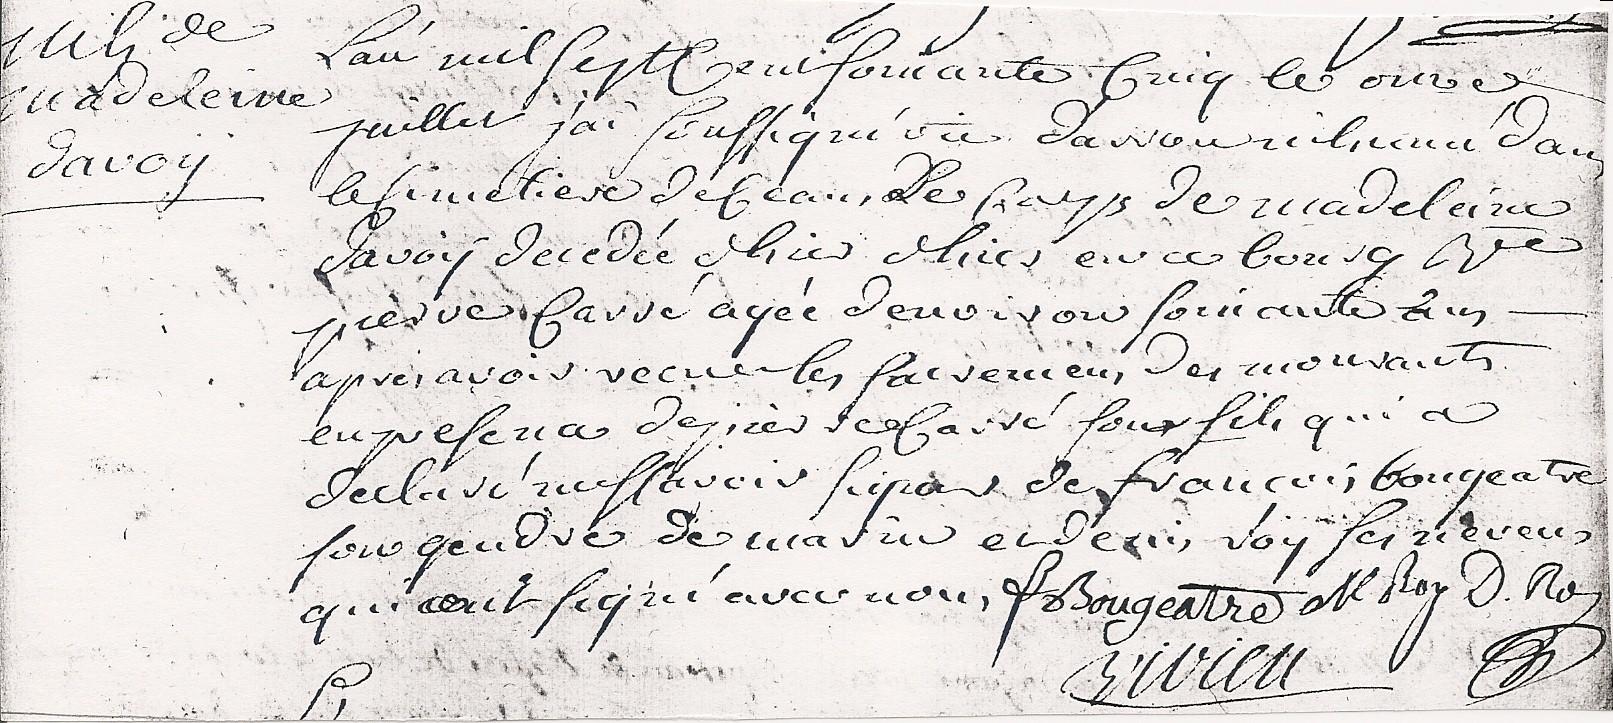 de
madeleine
davoy
L'an mil sept Cent soixante Cinq le onze
juillet j'ai soussigné inhumé dans
le simetiere de Ceans Le Corps de madeleine
davoy decedée d'hier en ce bourg Vve
pierre Carré agée d'environ soixante ans
apres avoir recue les sacremens des mourants
en presence de pierre Carré son fils qui a
declaré ne sçavoir signer de françois bougeatre
son gendre de marin et denis roy ses neveus
qui ont signé avec nous f Bougeatre M Roy D. Roy
Vivien